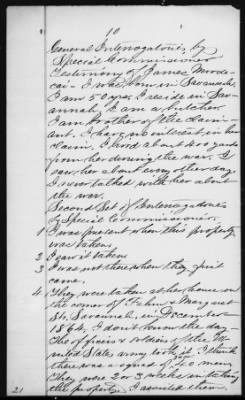 10
General Interrogatories, by
Special Commissioner
Testimony of James Morde-
cai - I was born in Savannah.
I am 50 yrs. I reside in Sav-
annah, I am a butcher.
I am brother of the claim-
ant. I have no interest in her
claim. I lived about 400 yards
from her during the war. I
saw her about every other day.
I never talked with her about
the war.
Second Set of Interrogatories
by Special Commissioner.
1 I was present when this property
was taken
2 I saw it taken
3 I was not there when they first
came.
4 They were taken at her house on
the corner of Fahm & Margaret
St. Savannah, in December
1864, I don't know the day
The officers & soldiers of the U-
nited States army took it. I think
there was a squad of 40 men.
They were 2 or 3 weeks in taking
the property. I assisted them
21